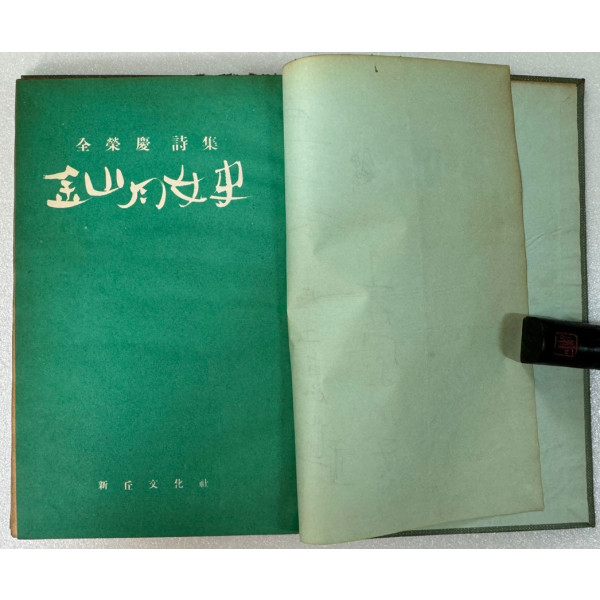 全榮慶 詩集
金山月女史
新丘文化社